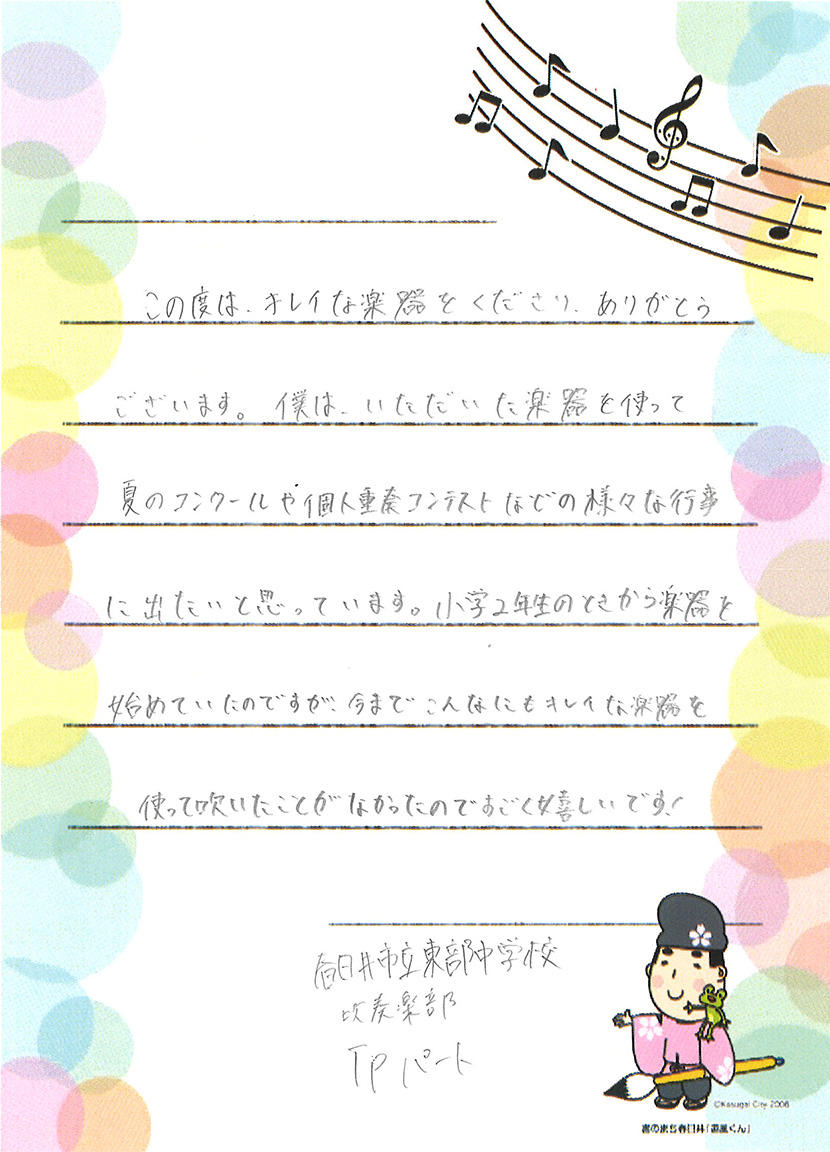 この度は、キレイな楽器をくださり、ありがとう
ございます。僕は、いただいた楽器を使って
夏のコンクールや個人重奏コンテストなどの様々な行事
に出たいと思っています。小学2年生のときから楽器を
始めていたのですが、今までこんなにもキレイな楽器を
使って吹いたことがなかったのですごく嬉しいです!
春日井市立東部中学校
吹奏楽部
Tpパート
©Kasugai City 2008
書のまち春日井「道風くん」